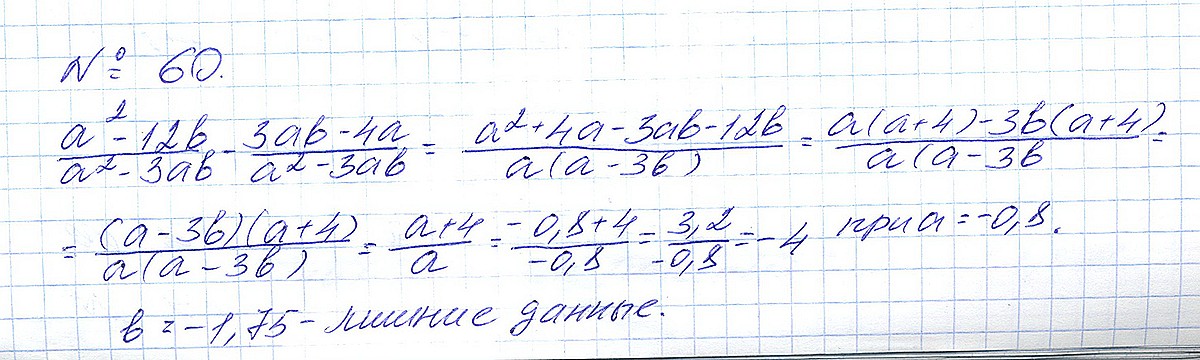 № 60.
a²-12b/a²-3ab - 3ab-4a/a²-3ab = a²+4a-3ab-12b/a(a-3b) = a(a+4)-3b(a+4)/a(a-3b =
= (a-3b)(a+4)/a(a-3b) = a+4/a = -0,8+4/-0,8 = 3,2/-0,8 = -4 при a=-0,8.
b=-1,75 - лишние данные.